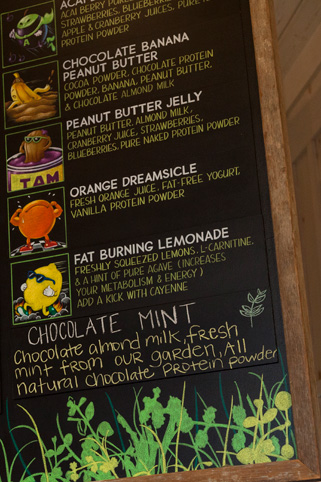 ACAI
ACAI BERRY
STRAWBERRIES, BLUEBERRIES
APPLE & CRANBERRY JUICES, PURE
PROTEIN POWDER
CHOCOLATE BANANA
PEANUT BUTTER
COCOA POWDER, CHOCOLATE PROTEIN
POWDER, BANANA, PEANUT BUTTER,
& CHOCOLATE ALMOND MILK
PEANUT BUTTER JELLY
PEANUT BUTTER, ALMOND MILK,
CRANBERRY JUICE, STRAWBERRIES,
BLUEBERRIES, PURE NAKED PROTEIN POWDER
JAM
ORANGE DREAMSICLE
FRESH ORANGE JUICE, FAT-FREE YOGURT,
VANILLA PROTEIN POWDER
FAT BURNING LEMONADE
FRESHLY SQUEEZED LEMONS, L-CARNITINE,
& A HINT OF PURE AGAVE (INCREASES
YOUR METABOLISM & ENERGY)
ADD A KICK WITH CAYENNE
CHOCOLATE MINT
Chocolate almond milk, fresh
mint from OUR garden, All
natural chocolate Protein powder